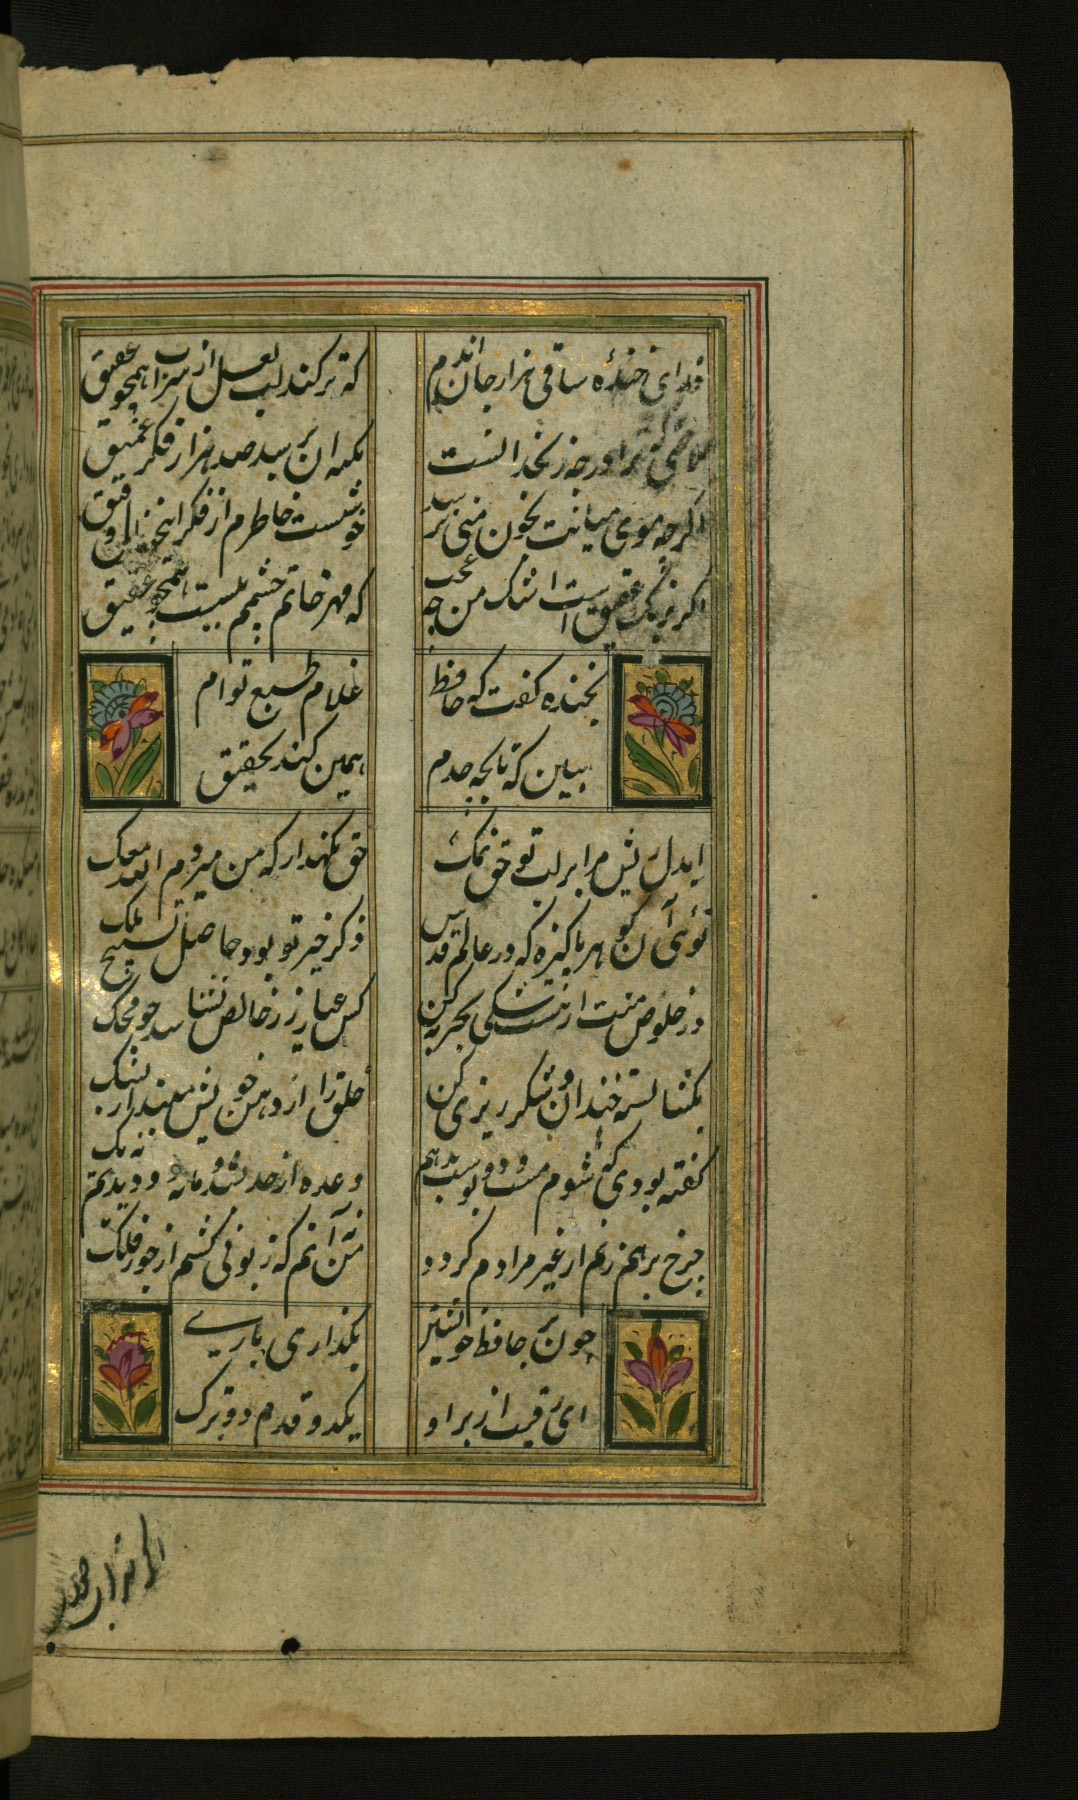 فدای خندهٔ ساقی هزار جان اندم
که تر کند لب لعل از شراب همچو عقیق
حلاوتی که ترا در چه زنخدانست
بکنه ان نرسد صد هزار فکر عمیق
اکرچه موی میانت بچون منی نرسد
خوشست خاطرم از فکر این خیال دقیق
اکر برنک عقیق است اشک من چه عجب
که مهر خاتم چشمم بسیست همچو عقیق
بخنده کفت که حافظ
غلام طبع توام
ببین که تا بچه حدم
همین کند تحقیق
ایدل ریش مرا بر لب تو حق نمک
حق نکهدار که من میروم الله معک
توئی آن کوهر پاکیزه که در عالم قدس
ذکر خیر تو بود حاصل تسبیح ملک
در خلوص منت ار هست شکی تجربه کن
کس عیار زر خالص نشناسد جو محک
بکشا پسته خندان و شکر ریزی کن
خلق را از دهن خویش مینداز بشک
کفته بودی که شوم مست و دو بوست بدهم
وعده از حد بشد و ما نه دو دیدیم و نه یک
چرخ برهم زنم ار غیر مرادم کردد
من نه آنم که زبونی کشم از جور فلک
چون بر حافظ خویشش
نکذاری باری
ای رقیب از بر او
یکدو قدم دورترک
اکر شراب خوری